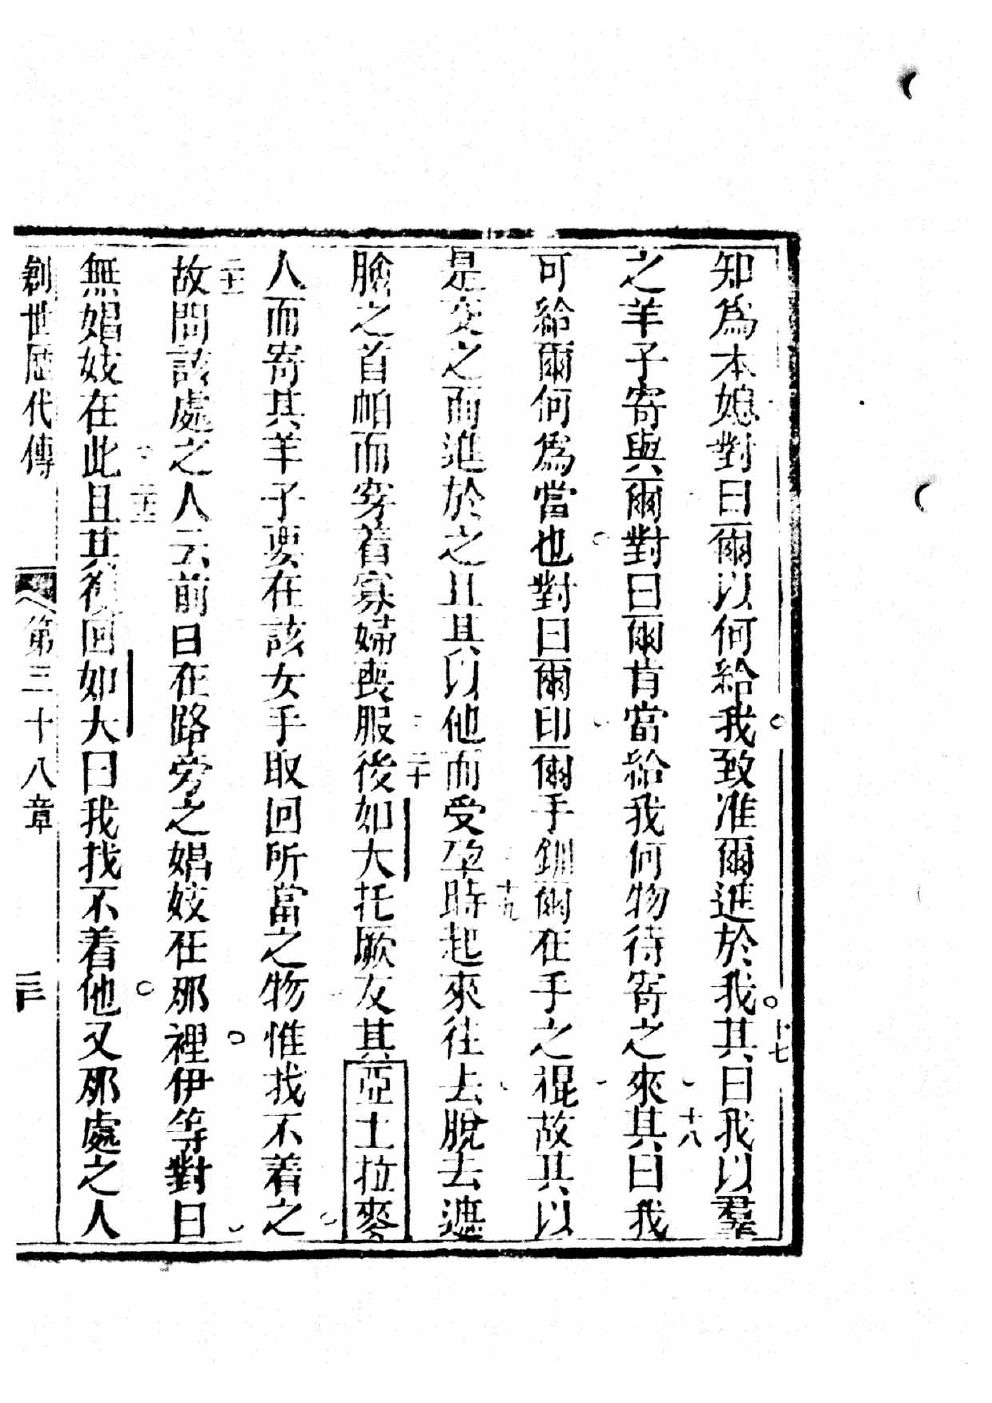 知爲本媳對曰爾以何給我致准爾進於我其曰我以羣
十七
之羊子寄與爾對曰爾肯當給我何物待寄之來其曰我
十八
可給爾何爲當也對曰爾印爾手釧爾在手之棍故其以
是交之而進於之且其以他而受孕時起來往去脫去遮
十九
臉之首帕而穿着寡婦喪服後如大托厥友其亞土拉麥
二十
人而寄其羊子要在該女手取回所當之物惟找不着之
故問該處之人云前日在路旁之娼妓在那裡伊等對曰
二十一
無娼妓在此且其復回如大曰我找不着他又那處之人
二十二
創世歷代傳 第三十八章